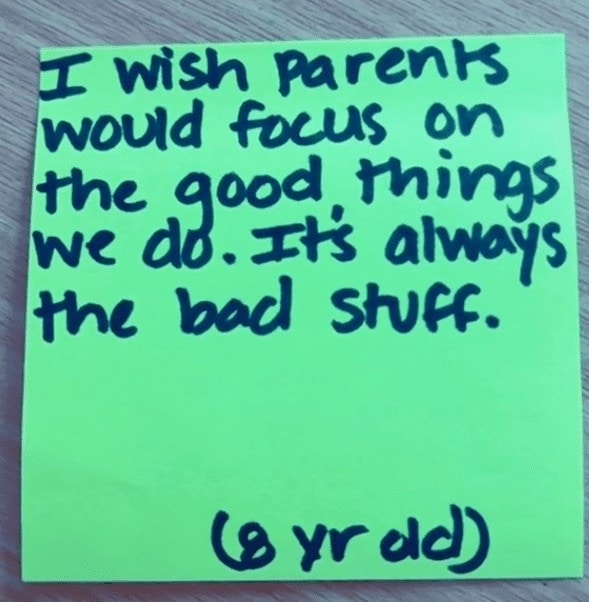 I wish parents
would focus on
the good things
we do. It's always
the bad stuff.
(8 yr old)